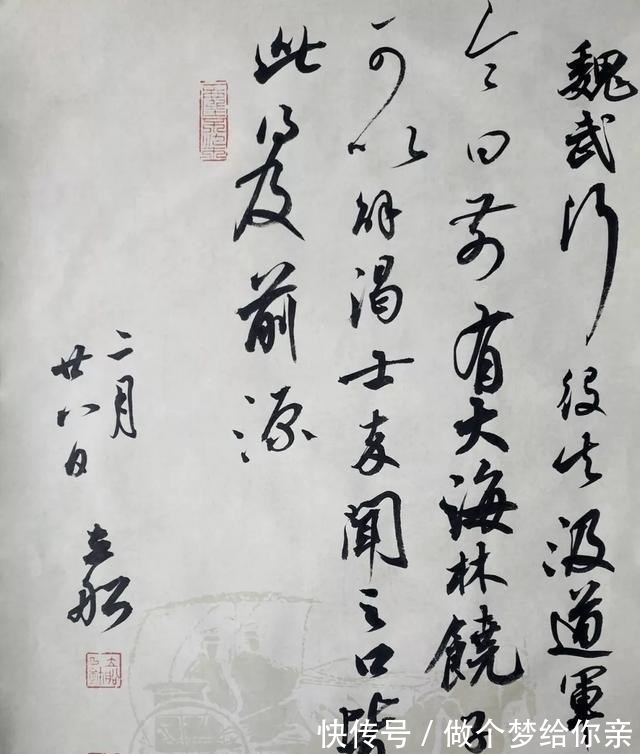 魏武行役失汲道軍
令曰前有大海林饒子
可以解渴士卒聞之口皆
此得及前源
二月
廿八日
快传号 / 做个梦给你亲